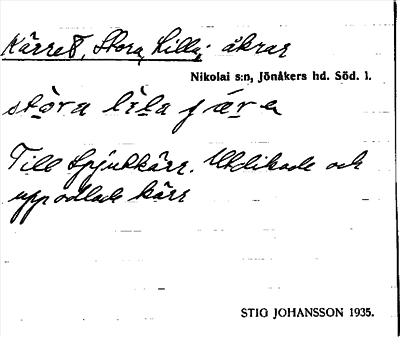 Kärret, Stora, Lilla; åkrar
Nikolai s:n, Jönåkers hd. Söd. l.
stòra lìla jæ̀ra
Till Spjutkärr. Utdikade och
uppodlade kärr
STIG JOHANSSON 1935.